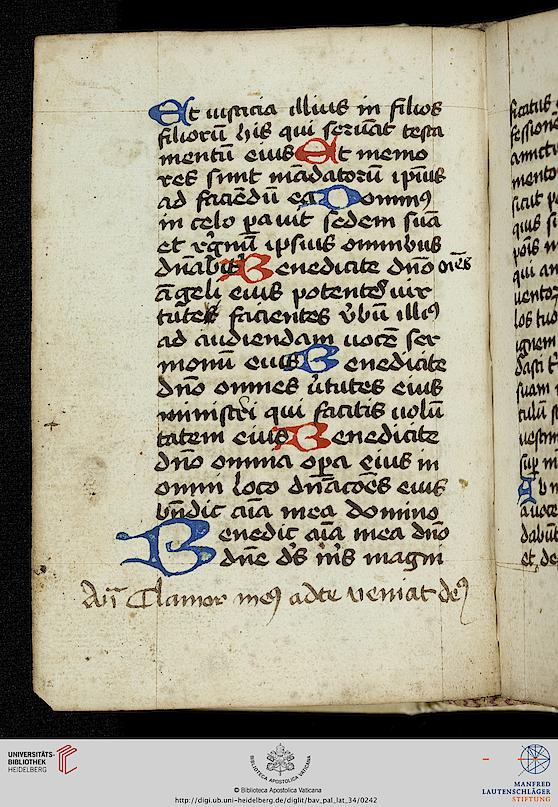 Et iusticia illius in filios
filiorū his qui seruāt testa
mentū eius Et memo
res sunt mādatorū ipius
ad faciēdū ea Domin9
in celo pauit sedem suā
et regnū ipsius omnibus
dn̄abit Benedicite dn̄o om̄es
āgeli eius potentes uir
tutes facientes v̄bū illi9
ad audiendam uocē ser
monū eius Benedicite
dn̄o omnes v̄tutes eius
ministri qui facitis uolū
tatem eius Benedicite
dn̄o omnia opa eius in
omni loco dn̄acōes eius
bn̄dic aīa mea domino
Benedic aīa mea dn̄o
dn̄e ds̄ ms̄ magni
An̄ Clamor me9 adte ueniat de9
ficatus
sessione
amictu
mento
sicut p
qui an
los tuo
ignem
suam
dabūt
et de
UNIVERSITÄTS-
BIBLIOTHEK
HEIDELBERG
BIBLIOTECA APOSTOLICA VATICANA
© Biblioteca Apostolica Vaticana
http://digi.ub.uni-heidelberg.de/diglit/bav_pal_lat_34/0242
MANFRED
LAUTENSCHLÄGER
STIFTUNG